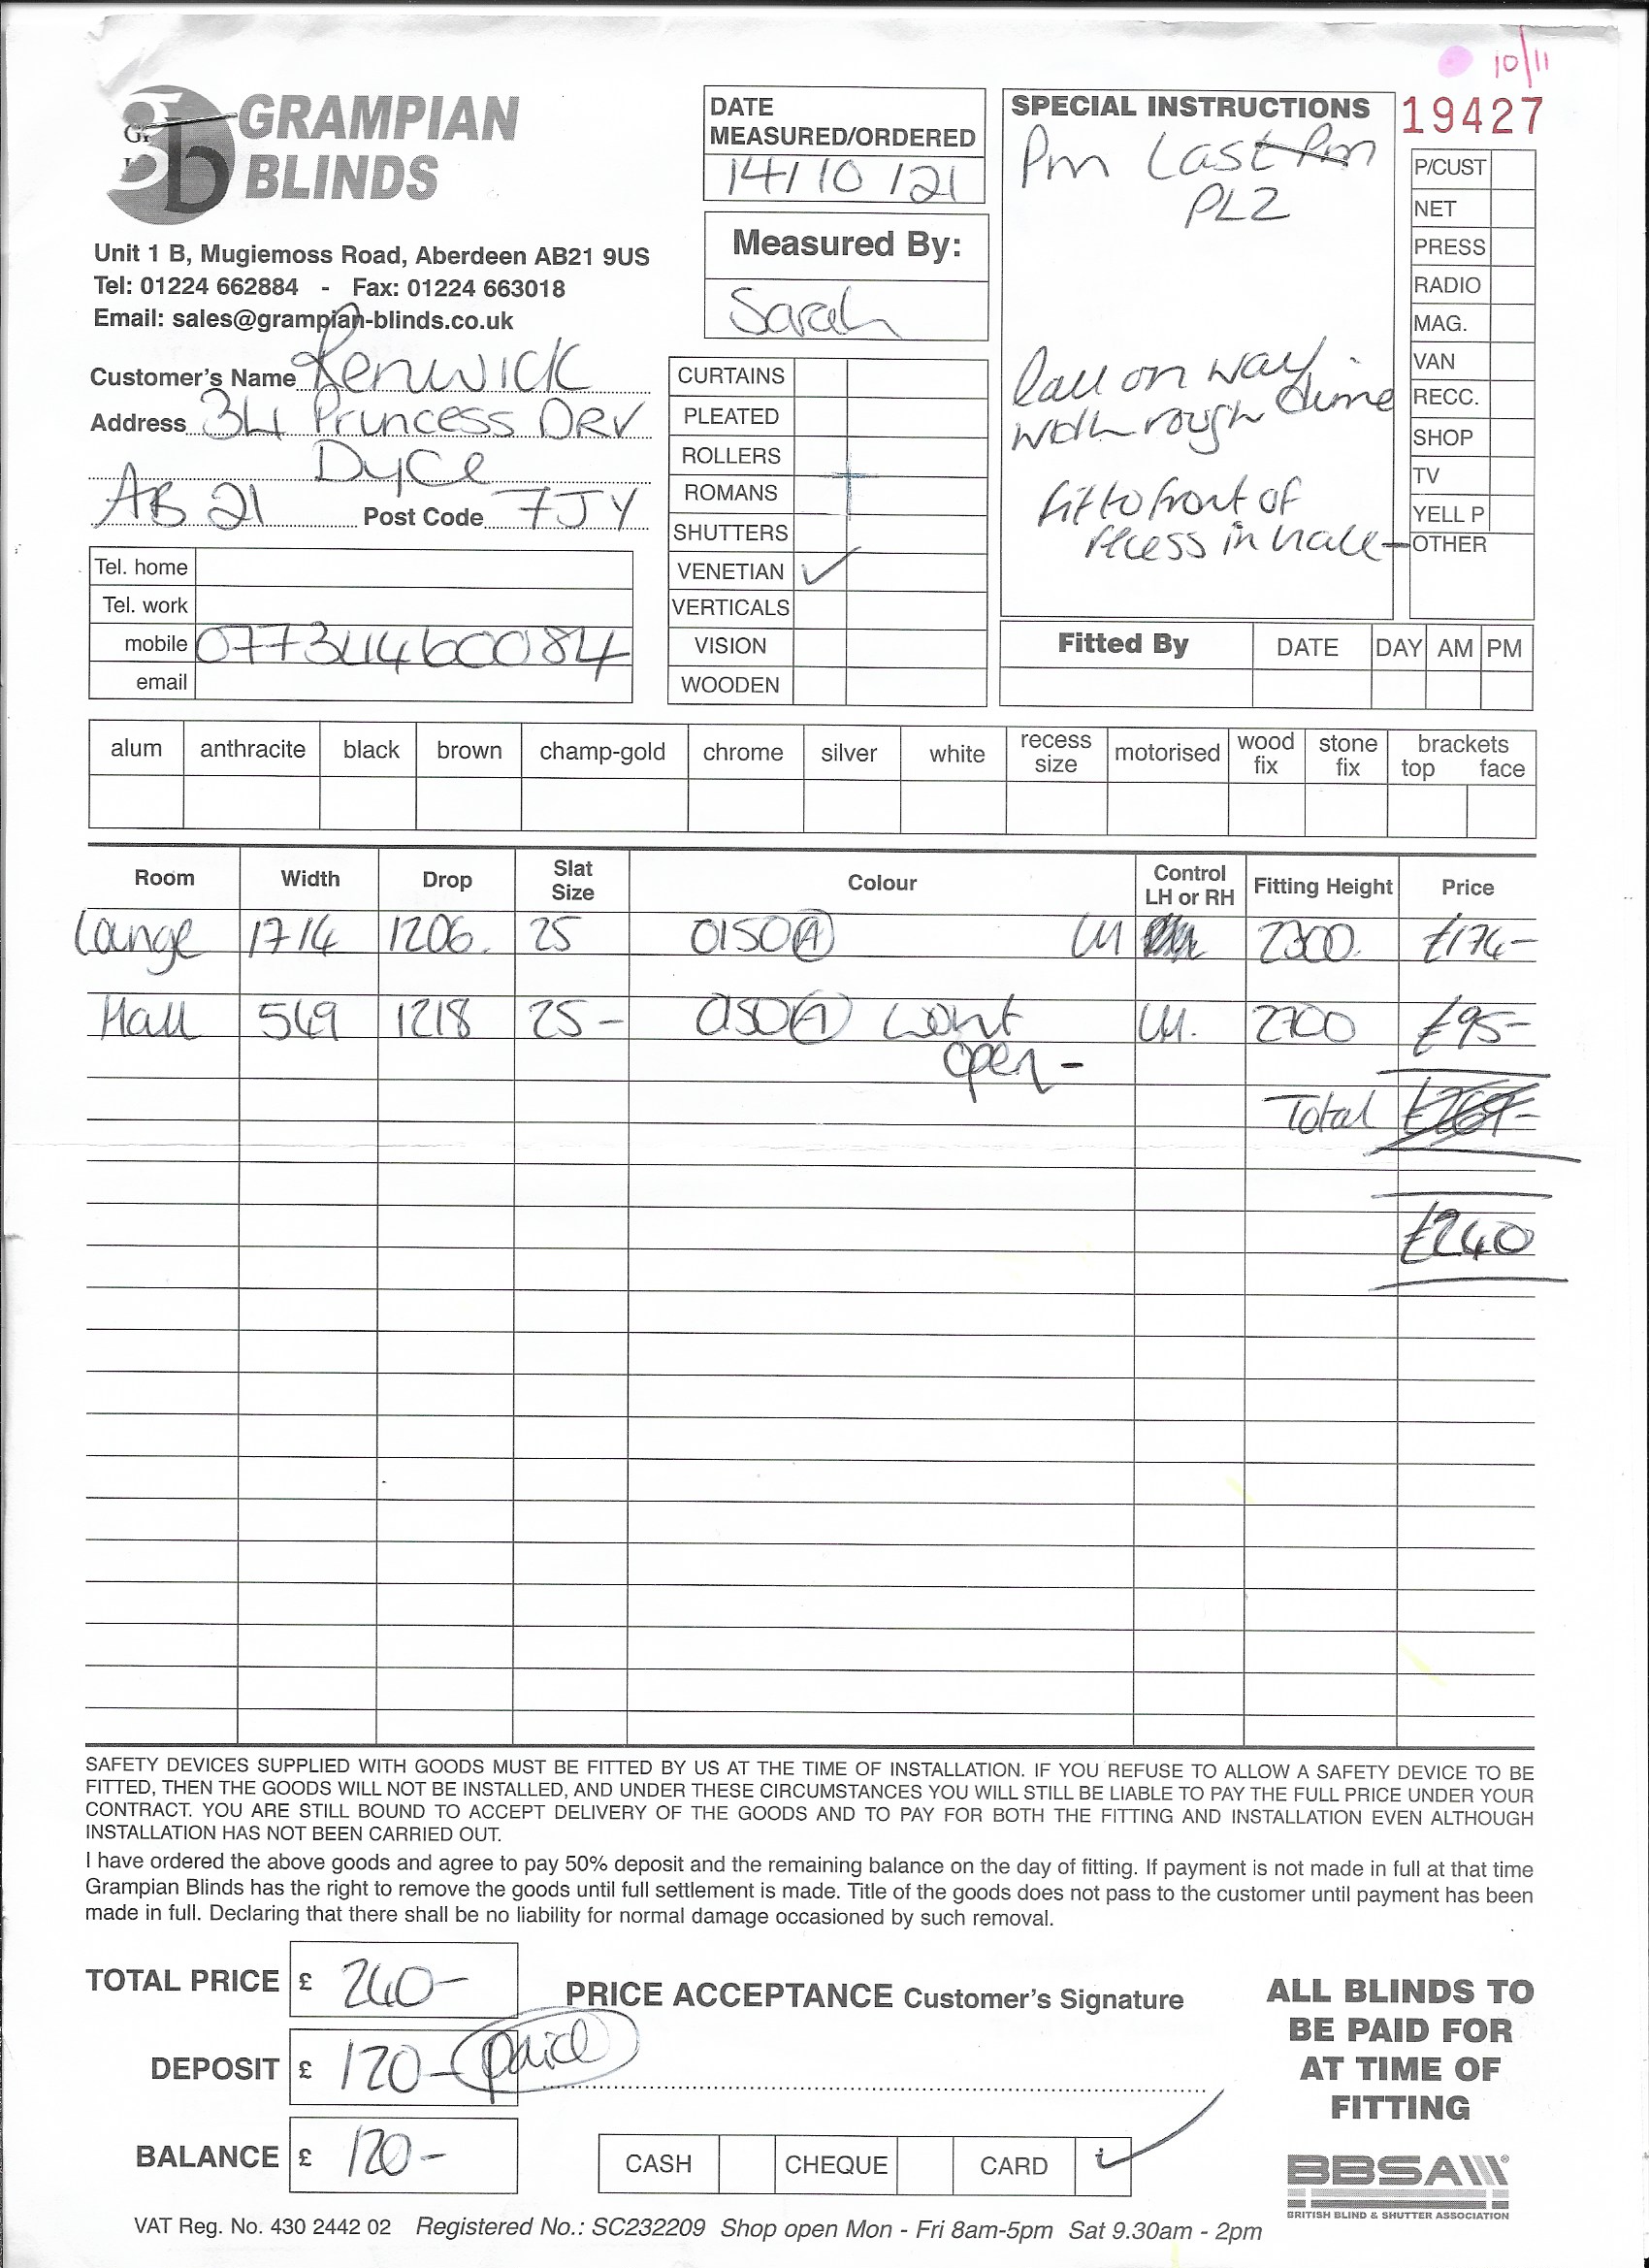 10/11
GRAMPIAN
BLINDS
Unit 1 B, Mugiemoss Road, Aberdeen AB21 9US
Tel: 01224 662884 - Fax: 01224 663018
Email: sales@grampian-blinds.co.uk
Customer's Name Renwick
Address 34 Princess DRV
Dyce
AB 21 Post Code 7JY
Tel. home
Tel. work
mobile 07734460084
email
DATE
MEASURED/ORDERED
14/10/21
Measured By:
Sarah
CURTAINS
PLEATED
ROLLERS
ROMANS
SHUTTERS
VENETIAN ✓
VERTICALS
VISION
WOODEN
SPECIAL INSTRUCTIONS
Pm Last Pm
PLZ
Call on way
with rough time
fit to front of
recess in hall -
19427
P/CUST
NET
PRESS
RADIO
MAG.
VAN
RECC.
SHOP
TV
YELL P
OTHER
Fitted By DATE DAY AM PM
alum anthracite black brown champ-gold chrome silver white recess size motorised wood fix stone fix brackets top face
Room Width Drop Slat Size Colour Control LH or RH Fitting Height Price
Lounge 1714 1206. 25 0150(A) LH 2300. £174-
Hall 549 1218 25 - 0150(A) wont LH. £95-
open -
Total £269-
£240
SAFETY DEVICES SUPPLIED WITH GOODS MUST BE FITTED BY US AT THE TIME OF INSTALLATION. IF YOU REFUSE TO ALLOW A SAFETY DEVICE TO BE
FITTED, THEN THE GOODS WILL NOT BE INSTALLED, AND UNDER THESE CIRCUMSTANCES YOU WILL STILL BE LIABLE TO PAY THE FULL PRICE UNDER YOUR
CONTRACT. YOU ARE STILL BOUND TO ACCEPT DELIVERY OF THE GOODS AND TO PAY FOR BOTH THE FITTING AND INSTALLATION EVEN ALTHOUGH
INSTALLATION HAS NOT BEEN CARRIED OUT.
I have ordered the above goods and agree to pay 50% deposit and the remaining balance on the day of fitting. If payment is not made in full at that time
Grampian Blinds has the right to remove the goods until full settlement is made. Title of the goods does not pass to the customer until payment has been
made in full. Declaring that there shall be no liability for normal damage occasioned by such removal.
TOTAL PRICE £ 240-
DEPOSIT £ 120- paid
BALANCE £ 120-
PRICE ACCEPTANCE Customer's Signature
CASH CHEQUE CARD ✓
ALL BLINDS TO
BE PAID FOR
AT TIME OF
FITTING
BBSA
BRITISH BLIND & SHUTTER ASSOCIATION
VAT Reg. No. 430 2442 02 Registered No.: SC232209 Shop open Mon - Fri 8am-5pm Sat 9.30am - 2pm